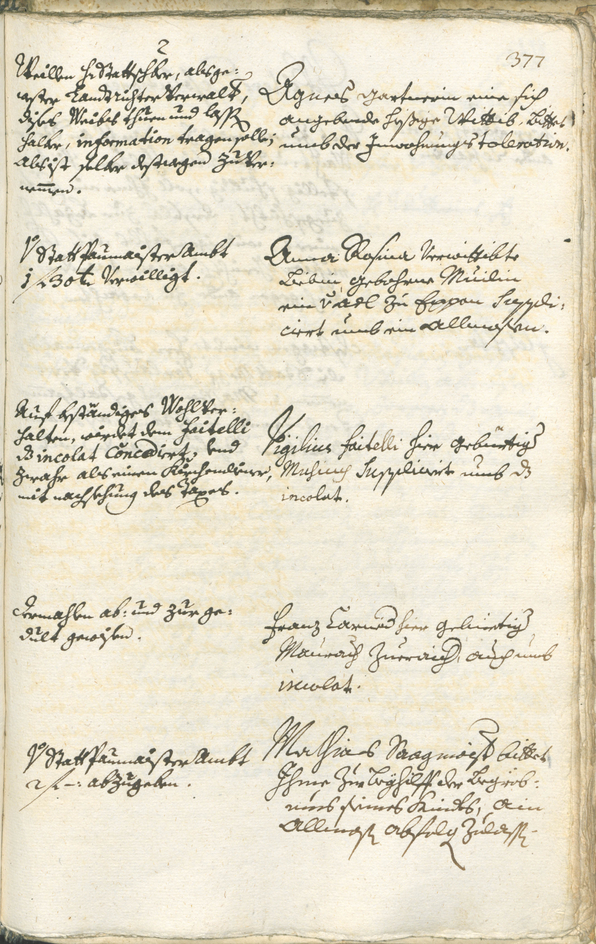 377
Weillen H: Stattschbr, als ge:
wester Landtrichter Verwalt,
dises Weibes thuen und lassen
halber, information tragen solle;
als ist selber destwegen zu ver:
nemmen.
Agnes Gartnerin eine sich
angebende hießige Wittib, bittet
umb der Inwohnungs toleration.
Statt Paumaister Ambt
1 f 30 verwilligt.
Anna Rosina verwittibte
gebohrne
ein Vädl zu Eppan Suppli:
ciert umb ein Allmosen.
Auf beständiges Wohl ver:
halten, würdet dem Faitelli
incolat Concediert, und
zwahr als einen
mit nachsehung des Taxes.
Vigilius Faitelli hier gebürtig
Musicus Suppliciert umb
incolat.
dermahlen ab: und zur ge:
dult gewisen.
Franz hier gebürtig
Maurer auch umb
incolat.
Statt Paumaister Ambt
2 f -: abzugeben.
Mathias Saagmaist bittet
Ihme zur Beyhilff der Begreb:
nus seines Kindts, ain
Allmosen abfolg zulassen